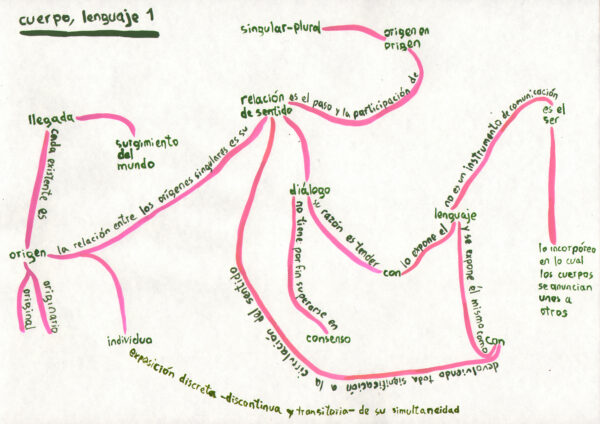 cuerpo, lenguaje 1
singular-plural
origen en
origen
es el paso y la participación de
relación
de sentido
llegada
surgimiento
del
mundo
cada existente es
origen
original
originario
la relación entre los orígenes singulares es su
individuo
exposición discreta -discontinua y transitoria- de su simultaneidad
diálogo
no tiene por fin superarse en
consenso
su razón es tender
con
lo expone el
lenguaje
no es un instrumento de comunicación
es el
ser
lo incorpóreo
en lo cual
los cuerpos
se anuncian
unos a
otros
y se expone él mismo como
con
devolviendo toda significación a la circulación del sentido